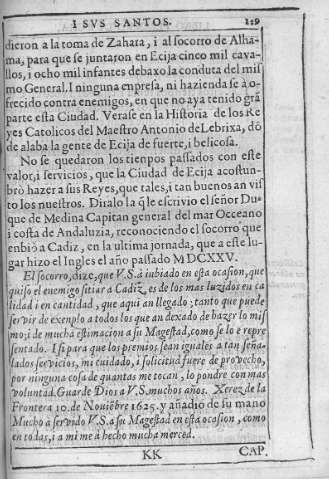 I SVS SANTOS. 119
dieron a la toma de Zahara, i al socorro de Alha-
ma, para que se juntaron en Ecija cinco mil cava-
llos, i ocho mil infantes debaxo la conduta del mis
mo General. I ninguna empresa, ni hazienda se à o-
frecido contra enemigos, en que no aya tenido grã
parte esta Ciudad. Verase en la Historia de los Re
yes Catolicos del Maestro Antonio de Lebrixa, dõ
de alaba la gente de Ecija de fuerte, i belicosa.
No se quedaron los tienpos passados con este
valor, i servicios, que la Ciudad de Ecija acostun-
brò hazer a sus Reyes, que tales, i tan buenos an vis
to los nuestros. Diralo la q̃ le escrivio el señor Du-
que de Medina Capitan general del mar Occeano
i costa de Andaluzia, reconociendo el socorro que
enbiò a Cadiz, en la ultima jornada, que a este lu-
gar hizo el Ingles el año passado M DCXXV.
El socorro, dize, que V.S. à inbiado en esta ocasion, que
quiso el enemigo sitiar a Cadiz, es de los mas luzidos en ca
lidad i en cantidad, que aqui an llegado; tanto que puede
servir de exenplo a todos los que an dexado de hazer lo mis
mo; i de mucha estimacion a su Magestad, como se lo è repre
sentado. I si para que los premios sean iguales a tan seña-
lados servicios, mi cuidado, i solicitud fuere de provecho,
por ninguna cosa de quantas me tocan, lo pondre con mas
voluntad. Guarde Dios a V.S. muchos años. Xerez de la
Frontera 10. de Noviẽbre 1625. y añadio de su mano
Mucho à servido V.S. a su Magestad en esta ocasion, como
en todas, i a mi me à hecho mucha merced.
KK CAP.